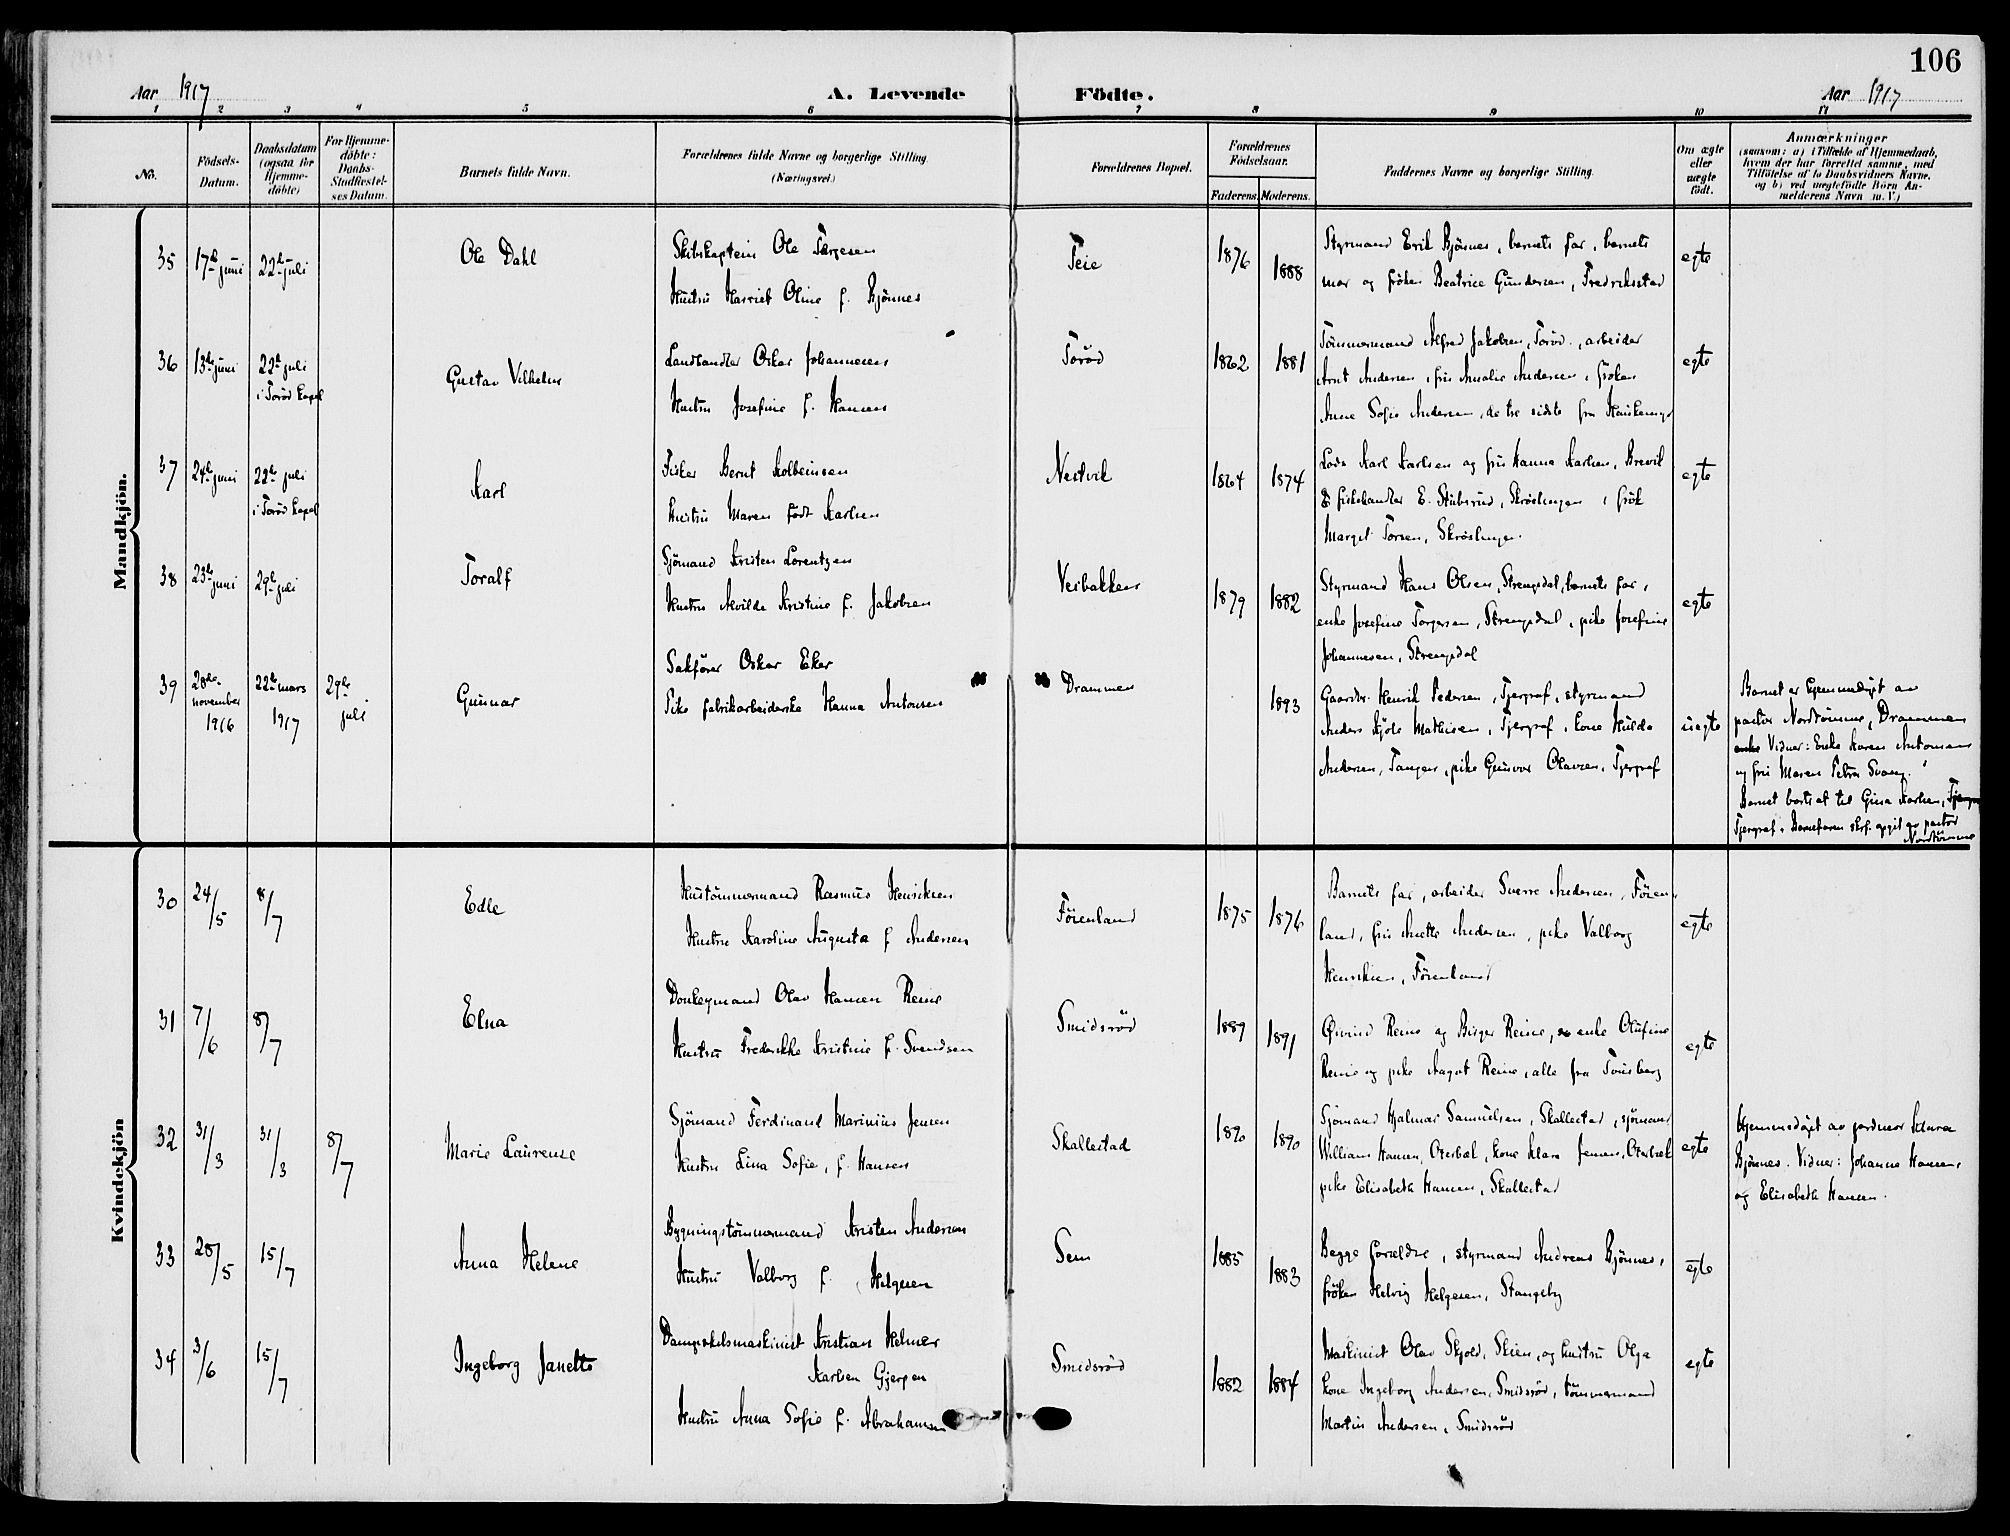 106
Aar 1917
A. Levende
Födte.
Aar 1917
1 2 3 4 5 6 7 8 9 10 11
No.
Födsels-
Datum.
Daabsdatum
(ogsaa for
Hjemme-
döbte)
For Hjemme-
döbte:
Daabs-
Stadfæstel-
ses Datum.
Barnets fulde Navn.
Forældrenes fulde Navne og borgerlige Stilling
(Næringsvei.)
Forældrenes Bopæl.
Forældrenes
Födselsaar.
Faderens. Moderens.
Faddernes Navne og borgerlige Stilling.
Om ægte
eller
uægte
födt.
Anmærkninger
(saasom: a) i Tilfælde af Hjemmedaab,
hvem der har forrettet samme, med
Tilföielse af to Daabsvidners Navne.
og b) ved uægtefödte Börn An-
melderens Navn m. V.)
Mandkjön.
35
17de juni
22de juli
Ole Dahl
Skibskaptein Ole Torgesen
Hustru Harriet Oline f. Bjönnes
Teie
1876
1888
Styrmand Erik Bjönnes, barnets far, barnets
mor og fröken Beatrice Gundersen, Fredriksstad
egte
36
13de juni
22de juli
i Torød kapel
Gustav Vilhelm
Landhandler Oskar Johannesen
Hustru Josefine f. Hansen
Torød
1862
1881
Tömmermand Alfred Jakobsen, Torød, arbeider
Arnt Andersen, fru Amalie Andersen, fröken
Anne Sofie Andersen, de tre sidste fra
egte
37
24de juni
22de juli
i Torød kapel
Karl
Fisker Bernt Kolbeinsen
Hustru Maren född Karlsen
Nestvik
1864
1874
Lods Karl Karlsen og fru Hanna Karlsen, Brevik
fiskehandler E. Stubsrud,
Margit Torsen,
egte
38
23de juni
29de juli
Toralf
Sjömand Kristen Lorentzen
Hustru Alvilde Kristine f. Jakobsen
Vestbakken
1879
1882
Styrmand Hans Olsen, Strengsdal, barnets far,
enke Josefine Torgersen, Strengsdal, pike Josefine
Johannesen, Strengsdal
egte
39
28de
november
1916
22de mars
1917
29de
juli
Gunnar
Sakförer Oskar Eker
Pike fabrikarbeiderske Hanna Antonsen
Drammen
1893
Gaardbr. Henrik Pedersen, Tjergraf, styrmand
Anders Kjöle Mathisen, Tjergraf, kone Hulda
Andersen, Tangen, pike Gunvor Olavsen, Tjergraf
uegte
Barnet er hjemmedöpt av
pastor Nordtömme, Drammen
Vidner: Enke Karen Antonsen
og fru Maren Petra Svang.
Barnet bortsat til Gina Karlsen,
Tjergraf. Barnefaren skr. opgit av pastor
Nordtömme
Kvindekjön
30
24/5
8/7
Edle
Hustömmermand Rasmus Henriksen
Hustru Karoline Augusta f Andersen
Föienland
1875
1876
Barnets far, arbeider Sverre Andersen, Föien-
land, fru Anette Andersen, pike Valborg
Henriksen, Föienland
egte
31
7/6
8/7
Elna
Donkeymand Olav Hansen Reine
Hustru Frederikke Kristine f. Svendsen
Smidsröd
1889
1891
Øivind Reine og Birger Reine, enke Olufine
Reine og pike Aagot Reine, alle fra Tönsberg
egte
32
31/3
31/3
8/7
Marie Laurense
Sjömand Ferdinand Marinius Jensen
Hustru Lina Sofie, f. Hansen
Skallestad
1890
1890
Sjömand Hjalmar Samuelsen, Skallestad, sjömand
William Hansen, Oterbæk, kone Klara Jensen, Oterbæk
pike Elisabeth Hansen, Skallestad
egte
Hjemmedöpt av jordmor Klara
Bjönnes. Vidner: Johanne Hansen
og Elisabeth Hansen.
33
28/5
15/7
Anna Helene
Bygningstömmermand Kristen Andersen
Hustru Valborg f. Helgesen
Sem
1885
1883
Begge forældre, styrmand Andreas Bjönnes,
fröken Helvig Helgesen, Stangeby
egte
34
3/6
15/7
Ingeborg Janette
Dampskibsmaskinist Kristian Helmer
Karlsen Gjerpen
Hustru Anna Sofie f. Abrahamsen
Smidsröd
1882
1884
Maskinist Olav Skjold, Skien, og hustru Olga
kone Ingeborg Andersen, Smidsröd, tömmermand
Martin Andersen, Smidsröd
egte